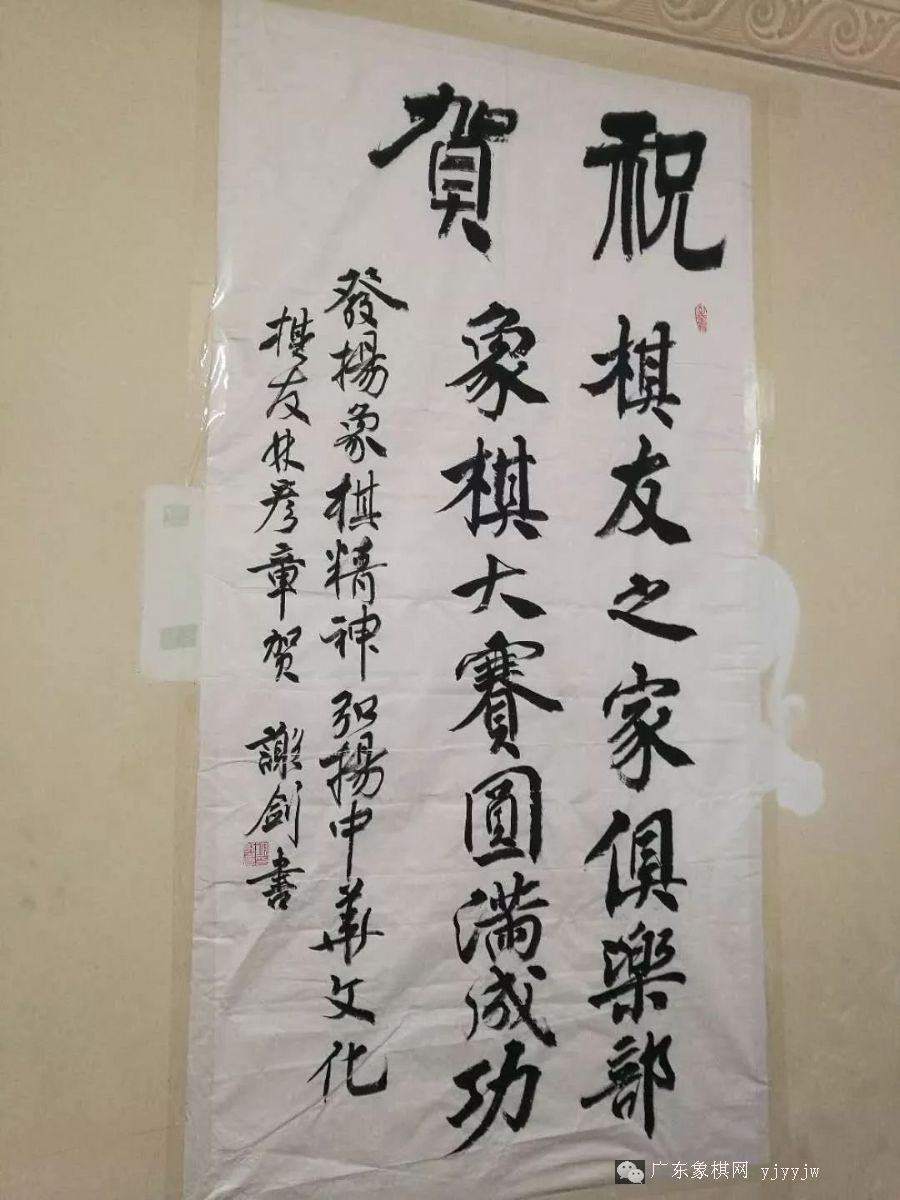 祝賀
棋友之家俱樂部
象棋大賽圓滿成功
發揚象棋精神弘揚中華文化
棋友林彦章贺 謝劍書
广东象棋网 yjyyjw